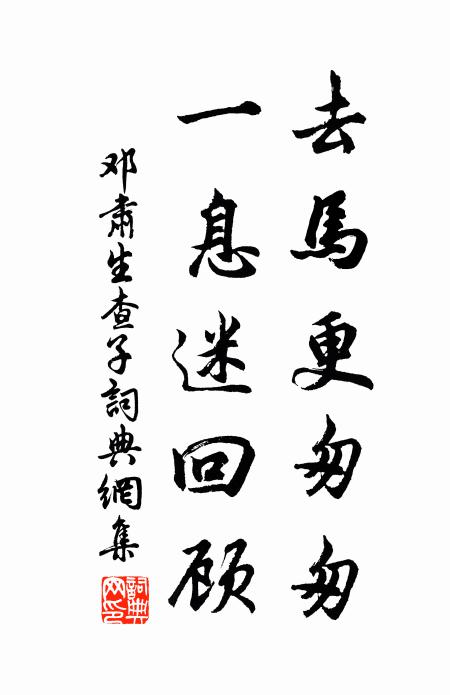 去馬更匆匆
一息迷回顾
邓肅生查子詞典網集
詞典网印